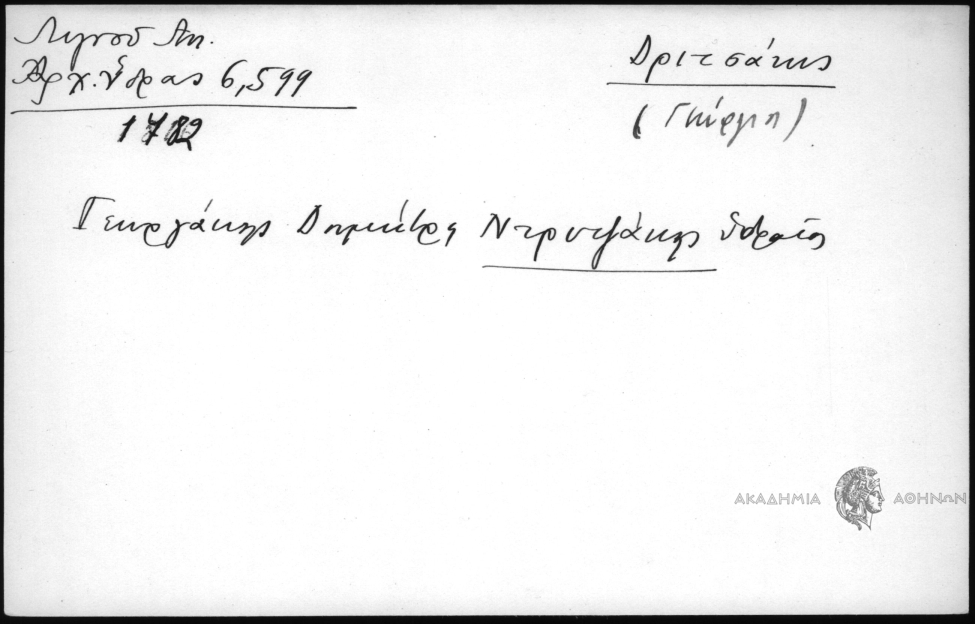 Λιγνού Αν.
Αρχ. Ύδρας 6,599
1782
Δριτσάκης
(Γεώργιο)
Γεωργάκης Δημήτρη Ντρυτζάκης Υδραίος
ΑΚΑΔΗΜΙΑ ΑΘΗΝΩΝ